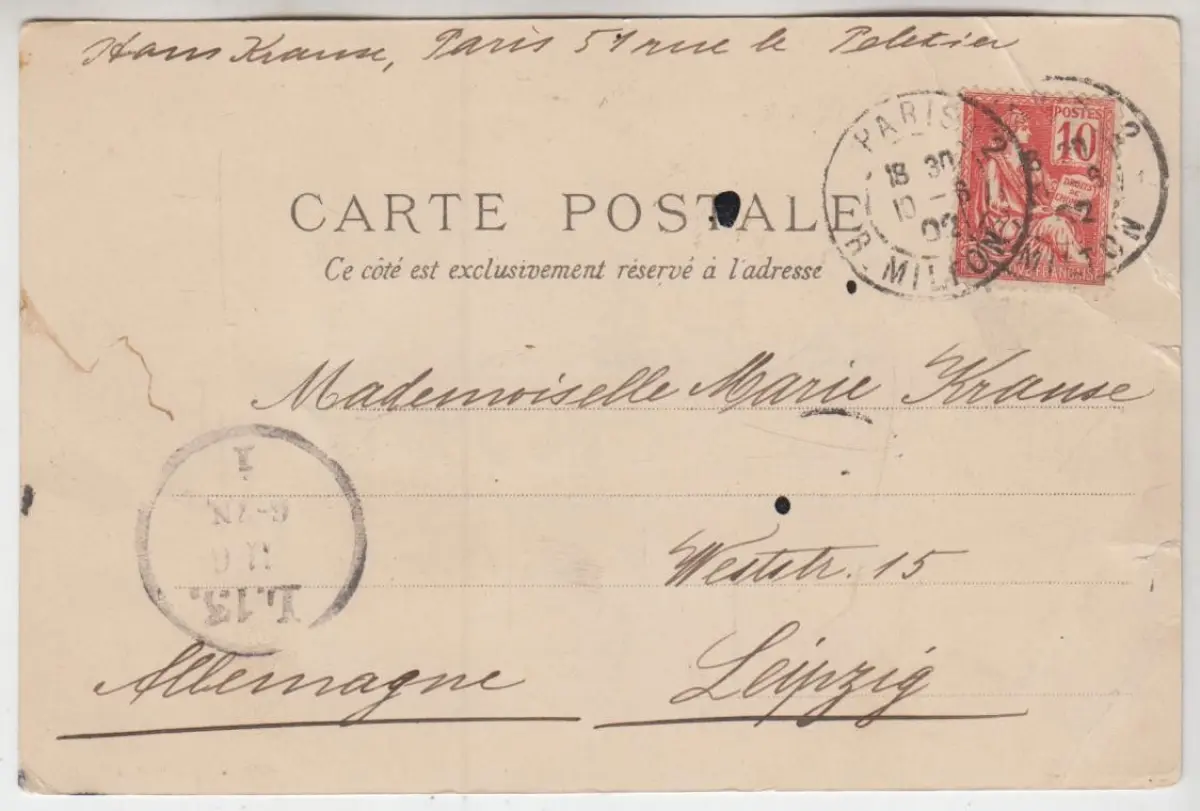 Hans Krause, Paris 51 rue le Peletier
POSTES
10
DROITS
DE
PARIS 2
18 30
10 - 6
02
R. MILTON
MILTON
CARTE POSTALE
Ce côté est exclusivement réservé à l'adresse
Mademoiselle Marie Krause
Weststr. 15
Leipzig
Allemagne
L.13.
11 6
6-7N.
1